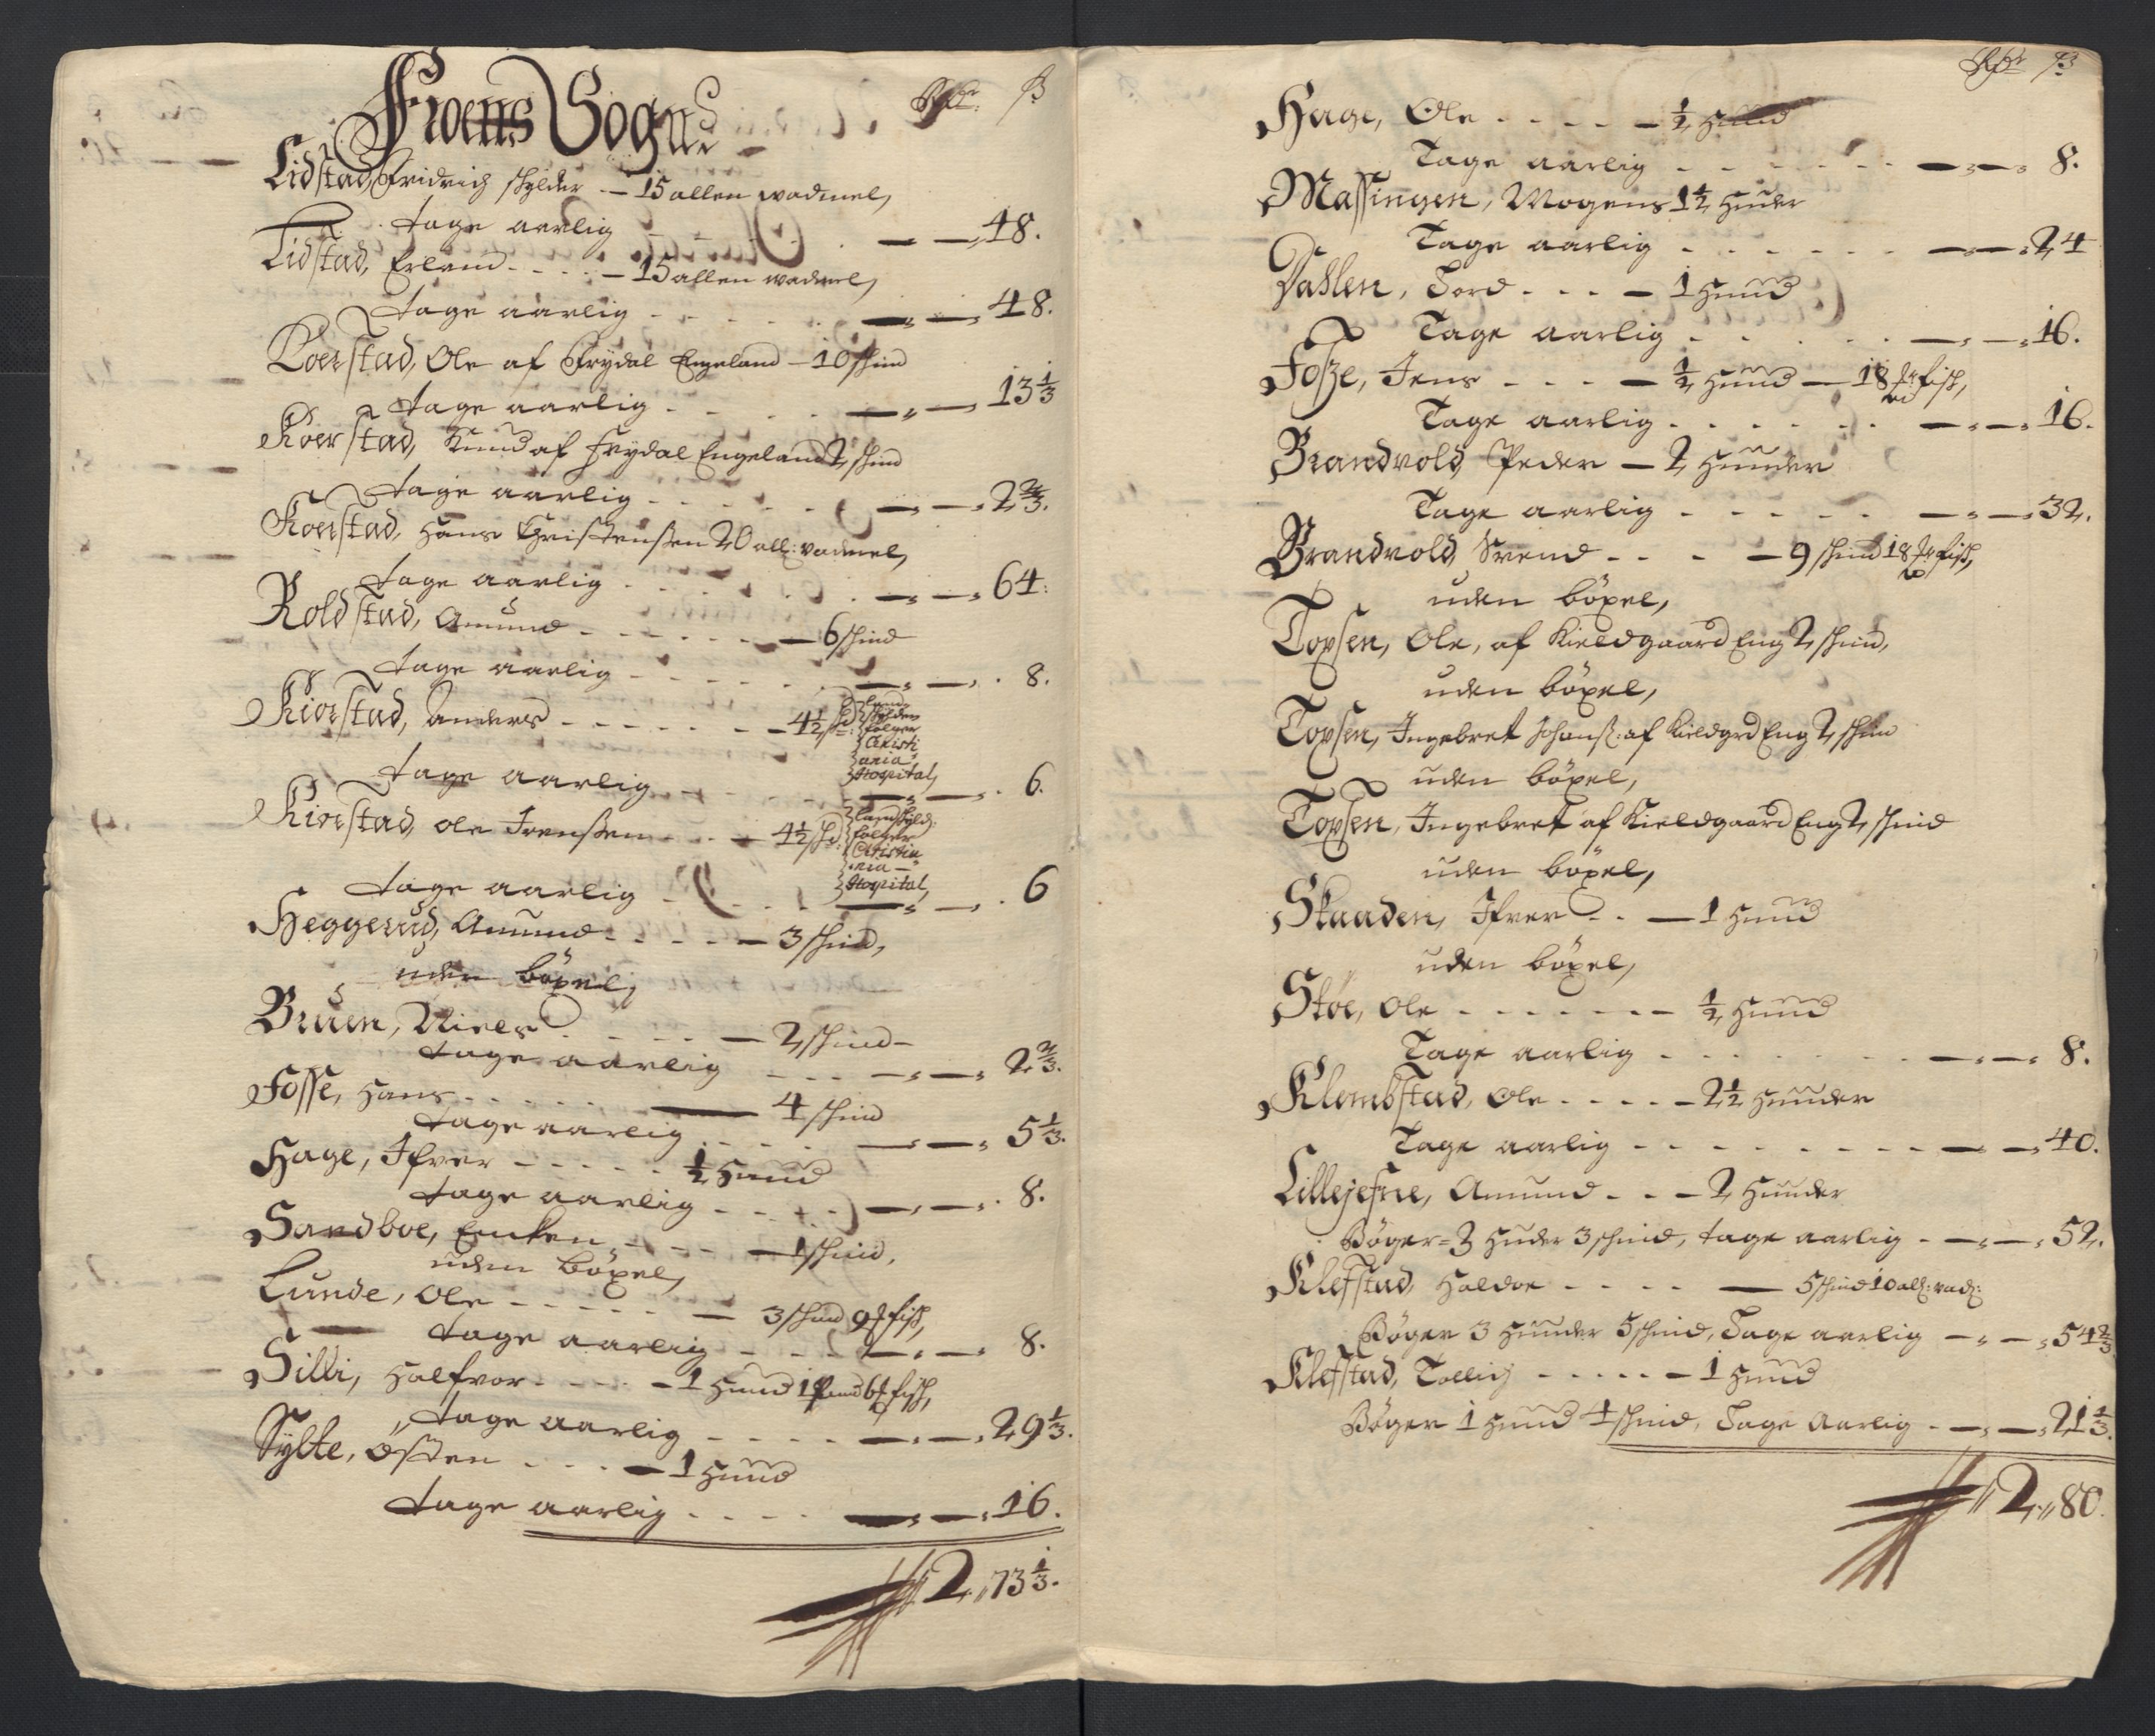 Froens Sogn
Rdr: ß
Lidstad, Fridrich skylder — 15 allen wadmel,
tage aarlig — — 48.
Lidstad, Erland — 15 allen wadmel,
tage aarlig — — 48.
Koerstad, Ole af Frydal Engeland — 10 skind
tage aarlig — — 13 1/3
Koerstad, Knud af Frydal Engeland 2 skind
tage aarlig — — 2 2/3.
Koerstad, Hans Christensen 20 all: vadmel,
tage aarlig — — 64:
Roldstad, Amund — 6 skind
tage aarlig — — 8.
Kiorstad, Anders — 4 1/2 skd: Land
skylden
følger
Christi
ania
Hospital,
tage aarlig — — 6.
Kiorstad, Ole Ivenssen — 4 1/2 skd: Landskyld:
følger
Christia
nia —
Hospital,
tage aarlig — — 6
Heggerud, Amund — 3 skind,
uden böxel,
Bruen, Niels — 2 skind —
tage aarlig — — 2 2/3.
Fosse, Hans — 4 skind
tage aarlig — — 5 1/3.
Hage, Ifver — 1/2 Hund
tage aarlig — — 8.
Sandboe, Encken — 1 skind,
uden böxel,
Lunde, Ole — 3 skind 9 fisk,
tage aarlig — — 8.
Silli, Halfvor — 1 Hund 1 Pund 6 fisk,
tage aarlig — — 29 1/3.
Sylte, Östen — 1 Hund
tage aarlig — — 16.
2 " 73 1/3.
Rdr ß
Hage, Ole — 1/2 Hud
Tage aarlig — — 8.
Massingen, Mogens 1 1/2 Huder
Tage aarlig — — 24
Dahlen, Tord — 1 Hund
Tage aarlig — — 16.
Fosze, Jens — 1/2 Hund — 18 fisk,
Tage aarlig — — 16.
Brandvold, Peder — 2 Hunder
Tage aarlig — — 32.
Brandvold, Svend — 9 skind 18 fisk,
uden böxel,
Topsen, Ole, af Kieldgaard Eng 2 skind,
uden böxel,
Topsen, Ingebret Johanß: af Kieldgrd Eng 2 skind
uden böxel,
Topsen, Ingebret af Kieldgaard Eng 2 skind
uden böxel,
Skaaden, Ifver — 1 Hund
uden böxel,
Stöe, Ole — 1/2 Hund
Tage aarlig — — 8.
Klombstad, Ole — 2 1/2 Hunder
Tage aarlig — — 40.
Lillejefne, Amund — 2 Hunder
Böger = 3 Huder 3 skind, tage aarlig — — 52.
Klefstad, Haldor — 5 skind 10 all: vad:
Böger 3 Hunder 5 skind, Tage aarlig — — 54 2/3
Klefstad, Tollich — 1 Hund
Böger 1 Hund 4 skind, Tage aarlig — — 21 1/3.
2 " 80.